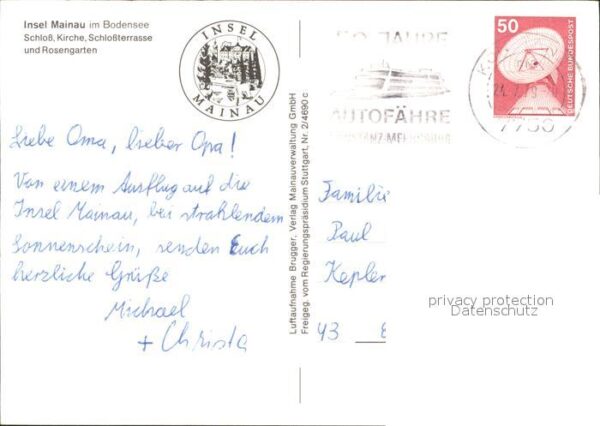 Insel Mainau im Bodensee
Schloß, Kirche, Schloßterrasse
und Rosengarten
INSEL
MAINAU
50 JAHRE
AUTOFÄHRE
KONSTANZ-MEERSBURG
50
DEUTSCHE BUNDESPOST
7750
Liebe Oma, lieber Opa!
Von einem Ausflug auf die
Insel Mainau, bei strahlendem
Sonnenschein, senden Euch
herzliche Grüße
Michael
+ Christa
Luftaufnahme Brugger, Verlag Mainauverwaltung GmbH
Freigeg. vom Regierungspräsidium Stuttgart, Nr. 2/4690 c
Familie
Paul
Kepler
43 E
privacy protection
Datenschutz